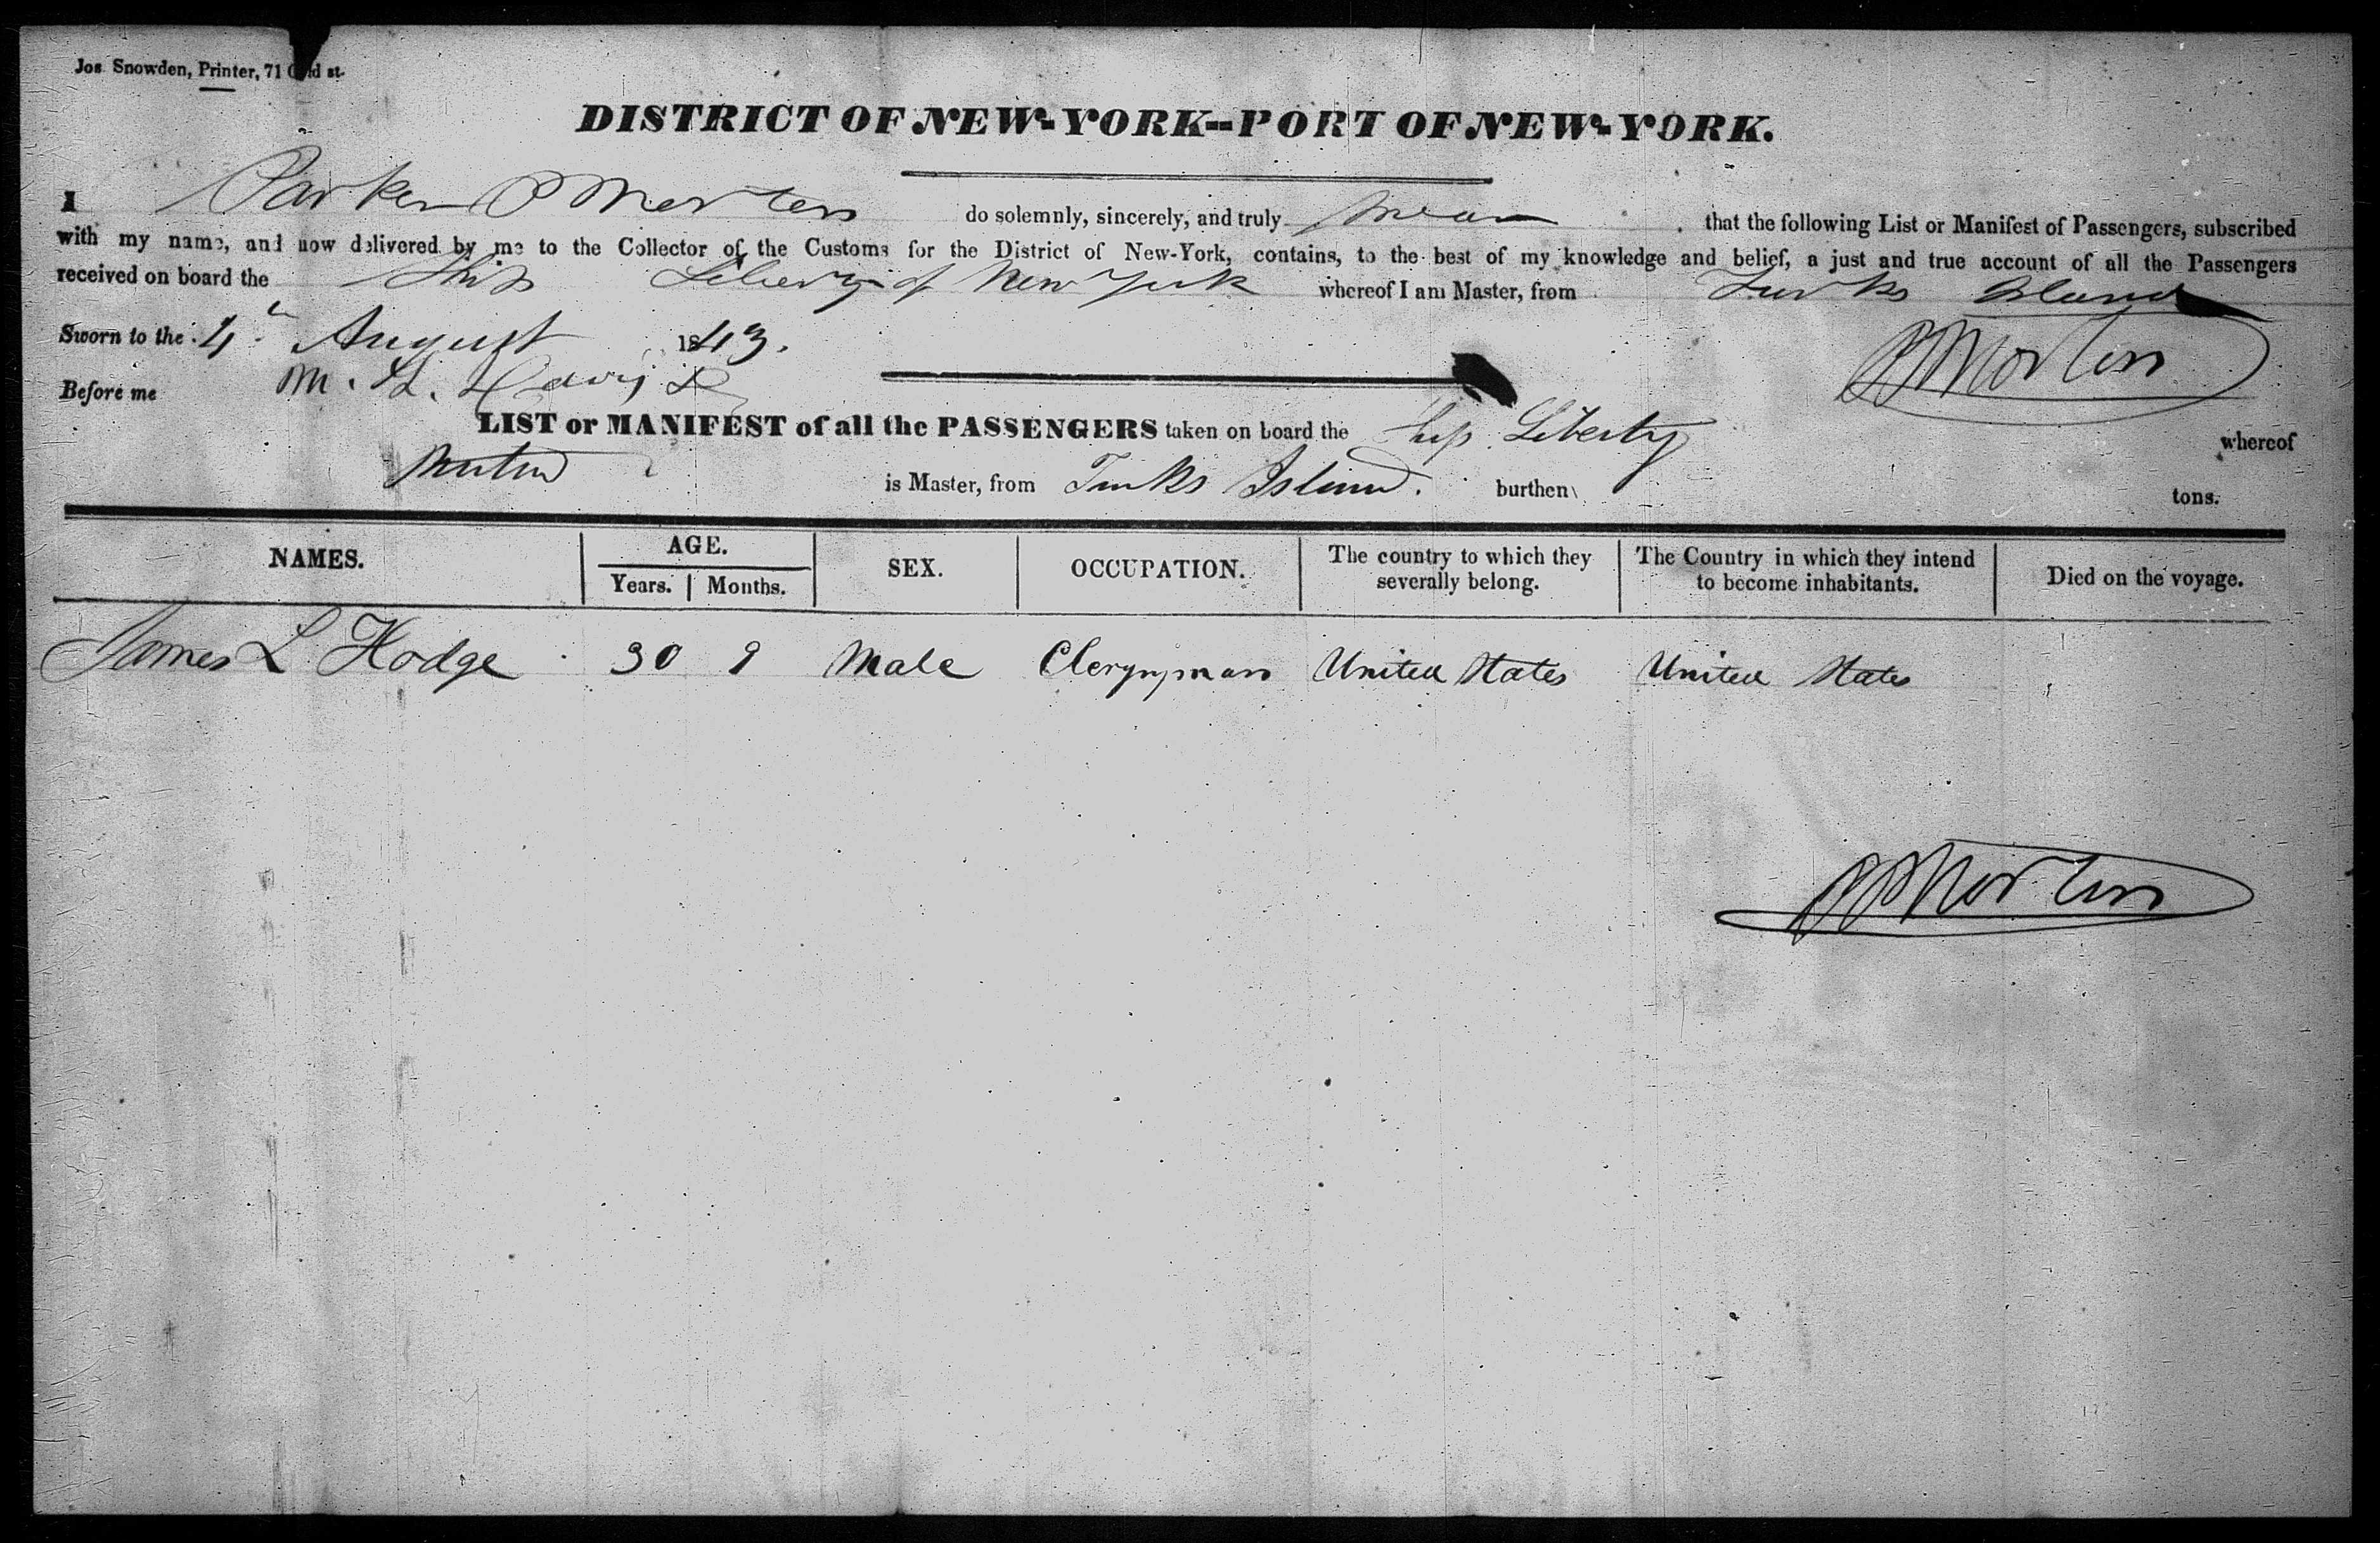 Jos. Snowden, Printer, 71 Gold st.
DISTRICT OF NEW-YORK--PORT OF NEW-YORK.
I Parker P Morten do solemnly, sincerely, and truly swear that the following List or Manifest of Passengers, subscribed
with my name, and now delivered by me to the Collector of the Customs for the District of New-York, contains, to the best of my knowledge and belief, a just and true account of all the Passengers
received on board the Ship Liberty of New York whereof I am Master, from Turks Island
Sworn to the 4th August 1843. P P Morten
Before me M. L. Davis
LIST or MANIFEST of all the PASSENGERS taken on board the Ship Liberty whereof
is Master, from Turks Island. burthen tons.
NAMES. AGE. SEX. OCCUPATION. The country to which they severally belong. The Country in which they intend to become inhabitants. Died on the voyage.
Years. Months.
James L Hodge 30 9 Male Clergyman United States United States
P P Morten